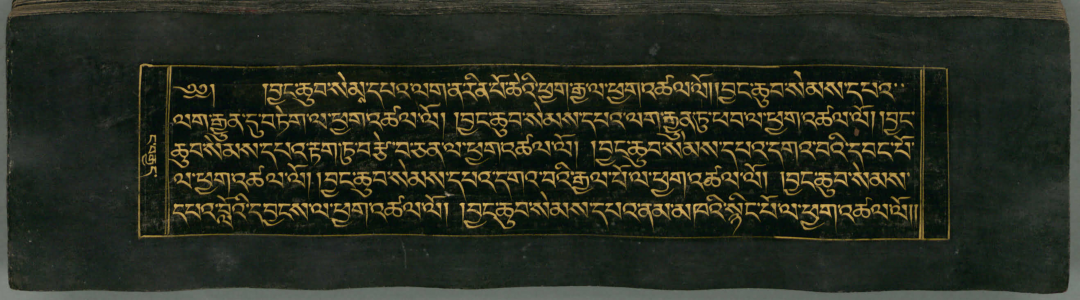 ༄༅། །བྱང་ཆུབ་སེམྶ་དཔའ་ལག་ན་རིན་པོ་ཆེའི་ཕྱག་རྒྱལ་ཕྱག་འཚལ་ལོ། །བྱང་ཆུབ་སེམས་དཔའ་
ལག་རྒྱུན་དུ་བརྟག་ལ་ཕྱག་འཚལ་ལོ། །བྱང་ཆུབ་སེམས་དཔའ་ལག་རྒྱུན་ཏུ་ཕབ་ལ་ཕྱག་འཚལ་ལོ། །བྱང་
ཆུབ་སེམས་དཔའ་རྟག་ཏུ་བརྩེ་བ་ཅན་ལ་ཕྱག་འཚལ་ལོ། །བྱང་ཆུབ་སེམས་དཔའ་དགའ་བའི་དབང་པོ་
ལ་ཕྱག་འཚལ་ལོ། །བྱང་ཆུབ་སེམས་དཔའ་དགའ་བའི་རྒྱལ་པོ་ལ་ཕྱག་འཚལ་ལོ། །བྱང་ཆུབ་སེམས་
དཔའ་བློའི་དབྱངས་ལ་ཕྱག་འཚལ་ལོ། །བྱང་ཆུབ་སེམས་དཔའ་ནམ་མཁའི་སྙིང་པོ་ལ་ཕྱག་འཚལ་ལོ།།